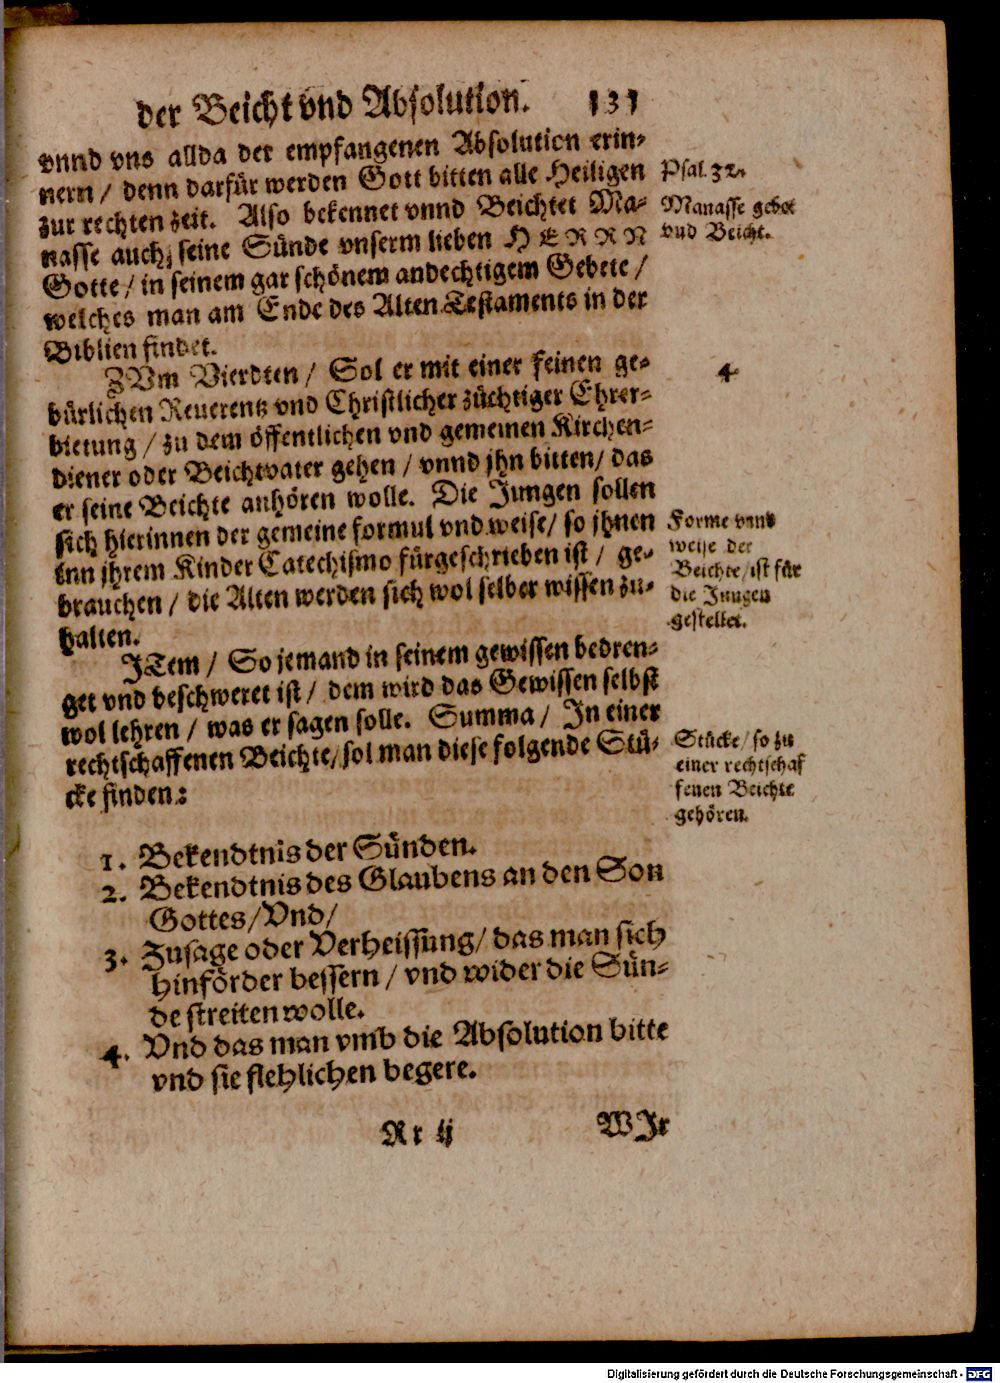 der Beicht vnd Absolution. 131
vnnd vns allda der empfangenen Absolution erin-
nern / denn darfür werden Gott bitten alle Heiligen
zur rechten zeit. Also bekennet vnnd Beichtet Ma-
nasse auch / seine Sünde vnserm lieben HERRN
Gotte / in seinem gar schönem andechtigem Gebete /
welches man am Ende des Alten Testaments in der
Biblien findet.
Psal. 32.
Manasse gebet
vnd Beicht.
ZVm Vierdten / Sol er mit einer feinen ge-
bürlichen Reuerentz vnd Christlicher züchtiger Ehrer-
bietung / zu dem öffentlichen vnd gemeinen Kirchen-
diener oder Beichtvater gehen / vnnd jhn bitten / das
er seine Beichte anhören wolle. Die Jungen sollen
sich hierinnen der gemeine formul vnd weise / so jhnen
inn jhrem Kinder Catechismo fürgeschrieben ist / ge-
brauchen / die Alten werden sich wol selber wissen zu-
halten.
4
Forme vnnd
weise der
Beichte / ist für
die Jungen
gestellet.
JTem / So jemand in seinem gewissen bedren-
get vnd beschweret ist / dem wird das Gewissen selbst
wol lehren / was er sagen solle. Summa / In einer
rechtschaffenen Beichte / sol man diese folgende Stü-
cke finden:
Stücke / so zu
einer rechtschaf
fenen Beichte
gehören.
1. Bekendtnis der Sünden.
2. Bekendtnis des Glaubens an den Son
Gottes / Vnd /
3. Zusage oder Verheissung / das man sich
hinförder bessern / vnd wider die Sün-
de streiten wolle.
4. Vnd das man vmb die Absolution bitte
vnd sie flehlichen begere.
Rr ij WJr
Digitalisierung gefördert durch die Deutsche Forschungsgemeinschaft - DFG